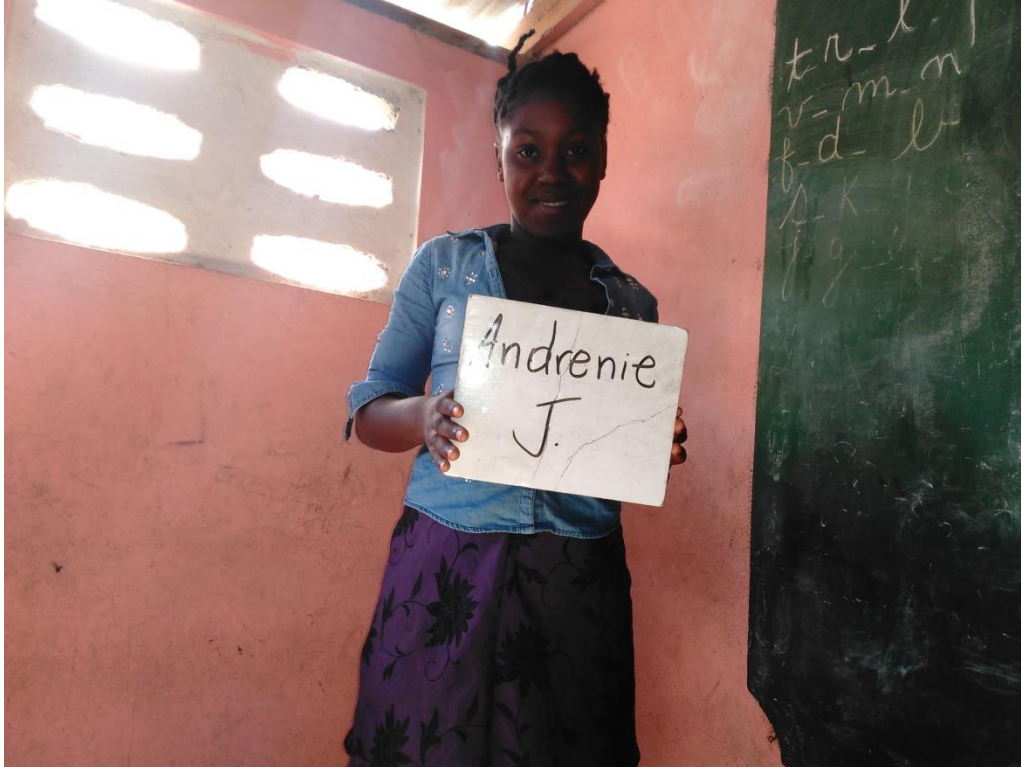 Andrenie
J.
t-r-l-
v-m-n
f-d-b
k
g